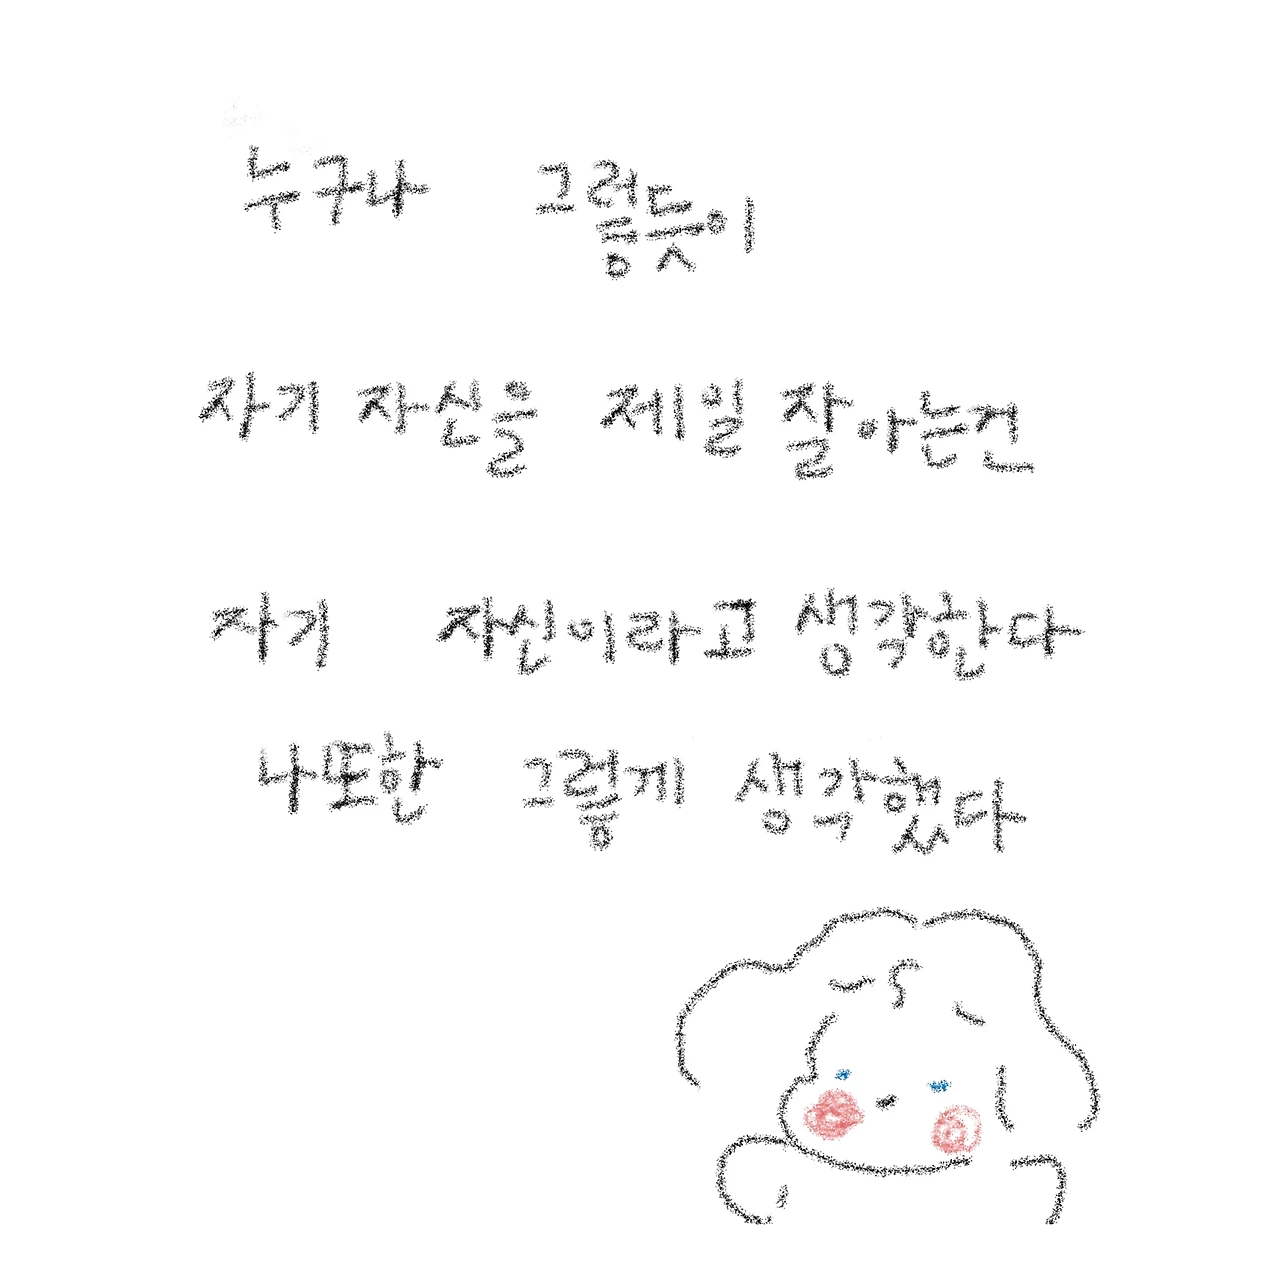 누구나 그렇듯이
자기 자신을 제일 잘아는건
자기 자신이라고 생각한다
나또한 그렇게 생각했다